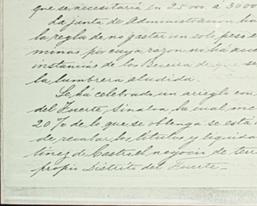 que se necesitaria en 25 00 a 3000
La junta de Administracion
la regla de no gastar un solo peso
minas, por cuya razon
instancias de los Becerra de que se
la lumbrera aludida.
Se ha celebrado un arreglo con
del Fuerte, Sinaloa la cual
20 % de lo que se obtenga se está
de recabar los titulos y liquida
tinez de Castro el negocio de
propio Distrito del Fuerte.